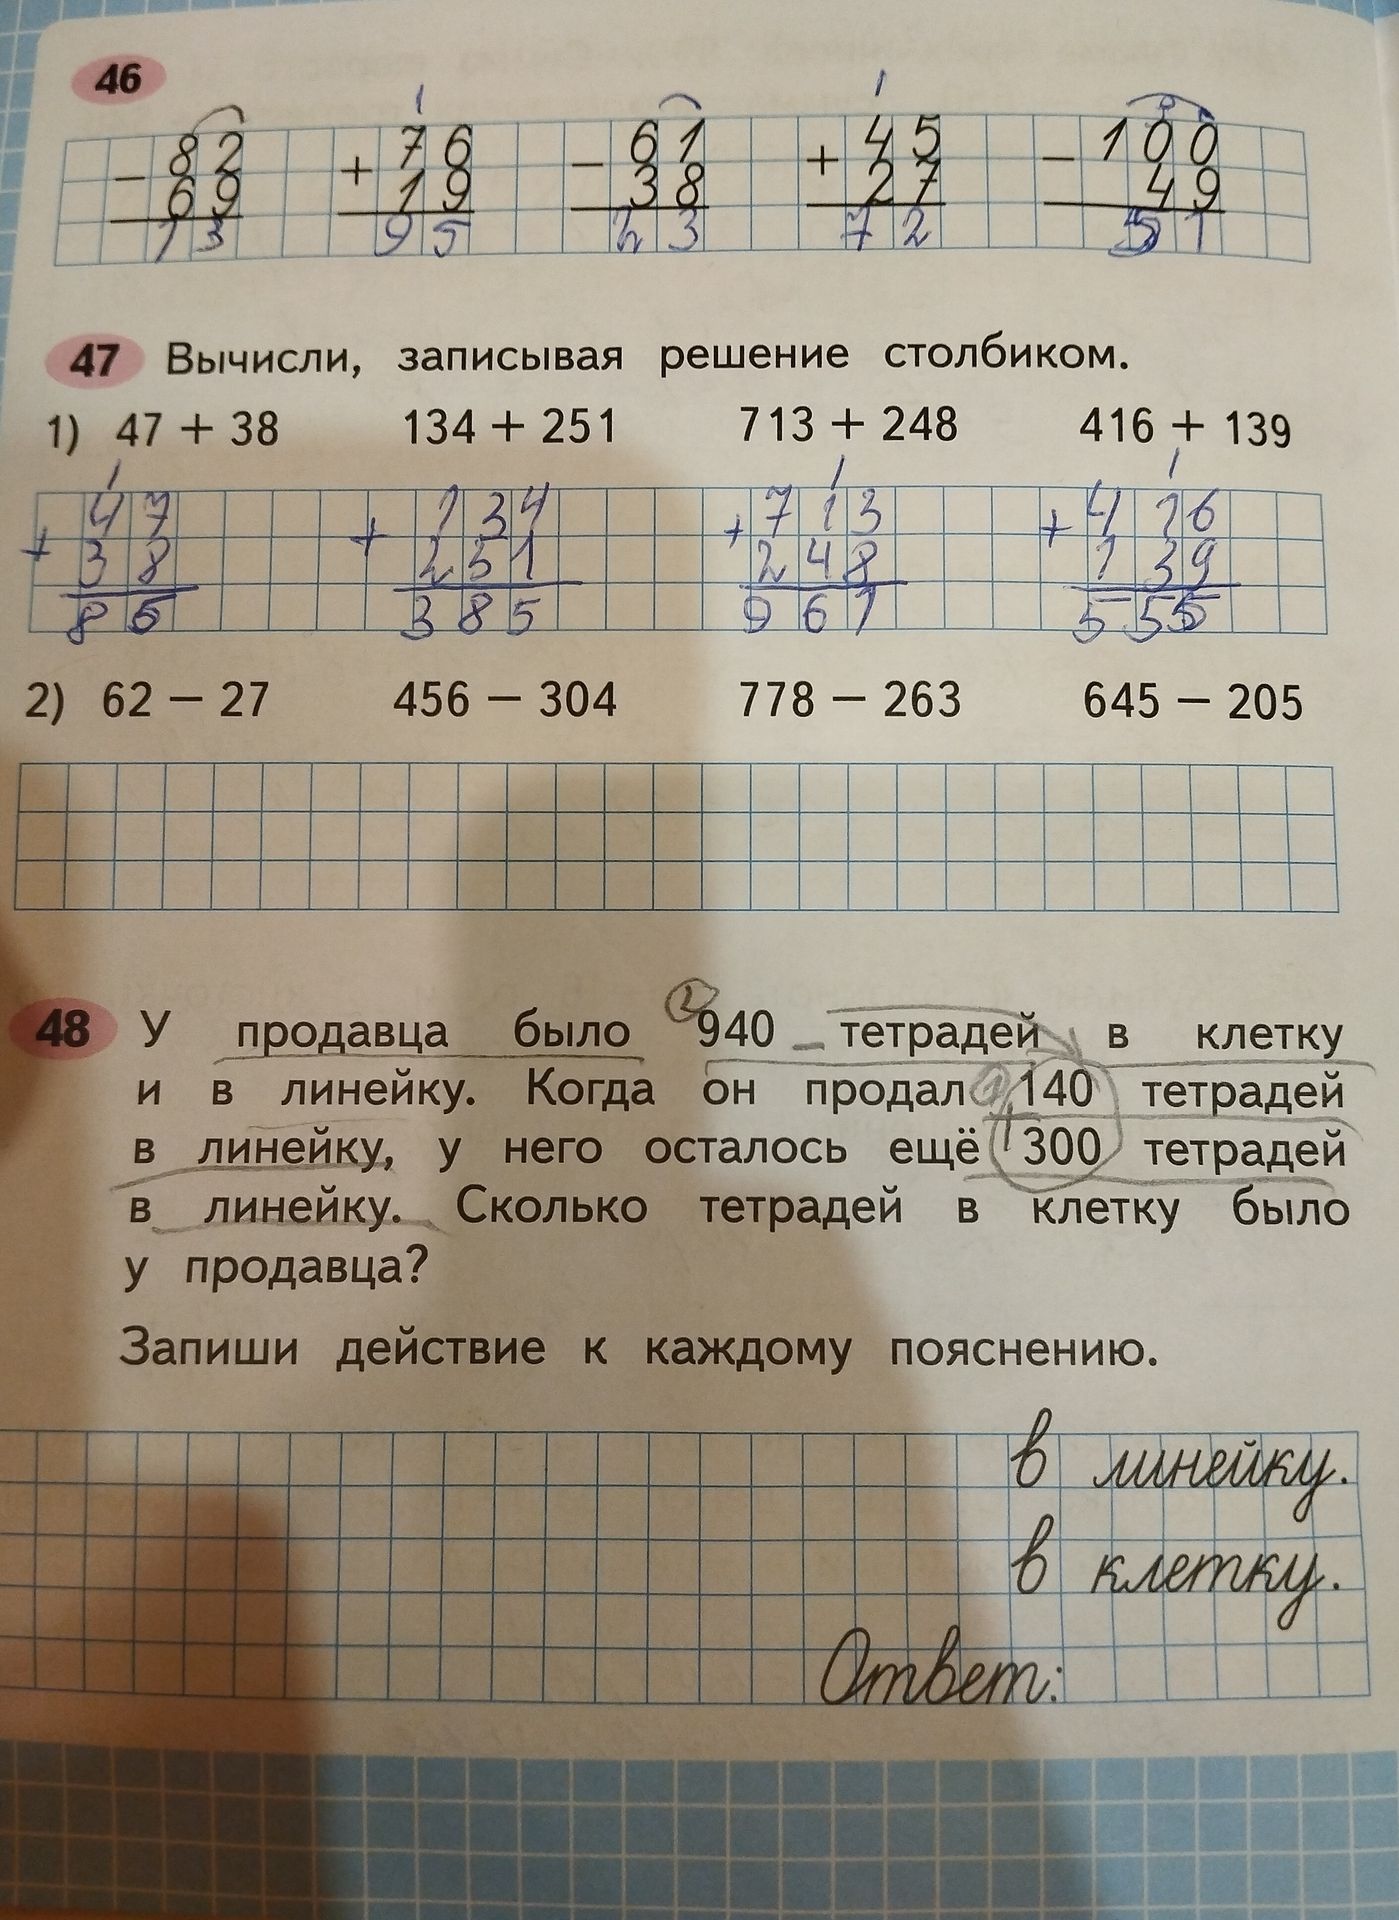 46
1 1
- 82 + 76 - 61 + 45 - 100
69 19 38 27 49
13 95 23 72 51
47 Вычисли, записывая решение столбиком.
1) 47 + 38 134 + 251 713 + 248 416 + 139
1 1 1
+ 47 + 134 + 713 + 416
38 251 248 139
85 385 961 555
2) 62 – 27 456 – 304 778 – 263 645 – 205
48 У продавца было 940 тетрадей в клетку
и в линейку. Когда он продал 140 тетрадей
в линейку, у него осталось ещё 300 тетрадей
в линейку. Сколько тетрадей в клетку было
у продавца?
Запиши действие к каждому пояснению.
в линейку.
в клетку.
Ответ: